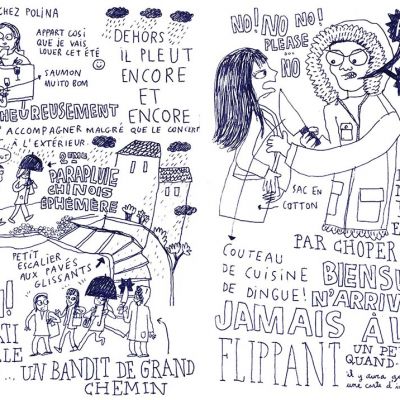 CHEZ POLINA
APPART COSI
QUE JE VAIS
LOUER CET ÉTÉ
SAUMON
MUITO BOM
DEHORS
IL PLEUT
ENCORE
ET
ENCORE
HEUREUSEMENT
ACCOMPAGNER MALGRÉ QUE LE CONCERT
À L'EXTÉRIEUR.
2ÈME
PARAPLUIE
CHINOIS
ÉPHÉMÈRE
PETIT
ESCALIER
AUX PAVÉS
GLISSANTS
... UN BANDIT DE GRAND
CHEMIN
NO! NO NO!
PLEASE
... NO
SAC EN
COTTON
PAR CHOPER
COUTEAU
DE CUISINE
DE DINGUE!
BIENSU
N'ARRIV
JAMAIS À L
FLIPPANT
UN PE
QUAND
il y aura
une carte d'